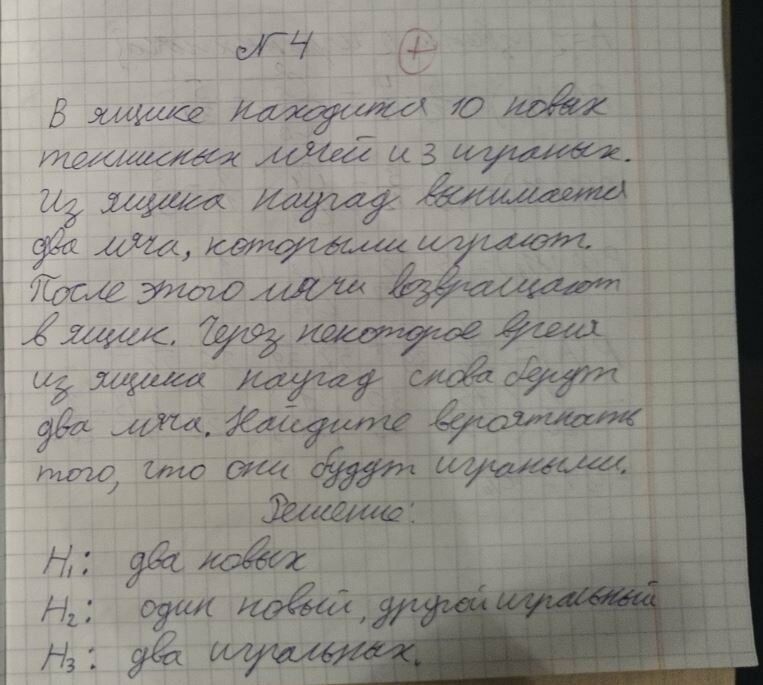 № 4 +
В ящике находится 10 новых
теннисных мячей и 3 играных.
Из ящика наугад вынимается
два мяча, которыми играют.
После этого мячи возвращают
в ящик. Через некоторое время
из ящика наугад снова берут
два мяча. Найдите вероятнать
того, что они будут играными.
Решение:
H₁: два новых
H₂: один новый, другой игральный
H₃: два игральных.